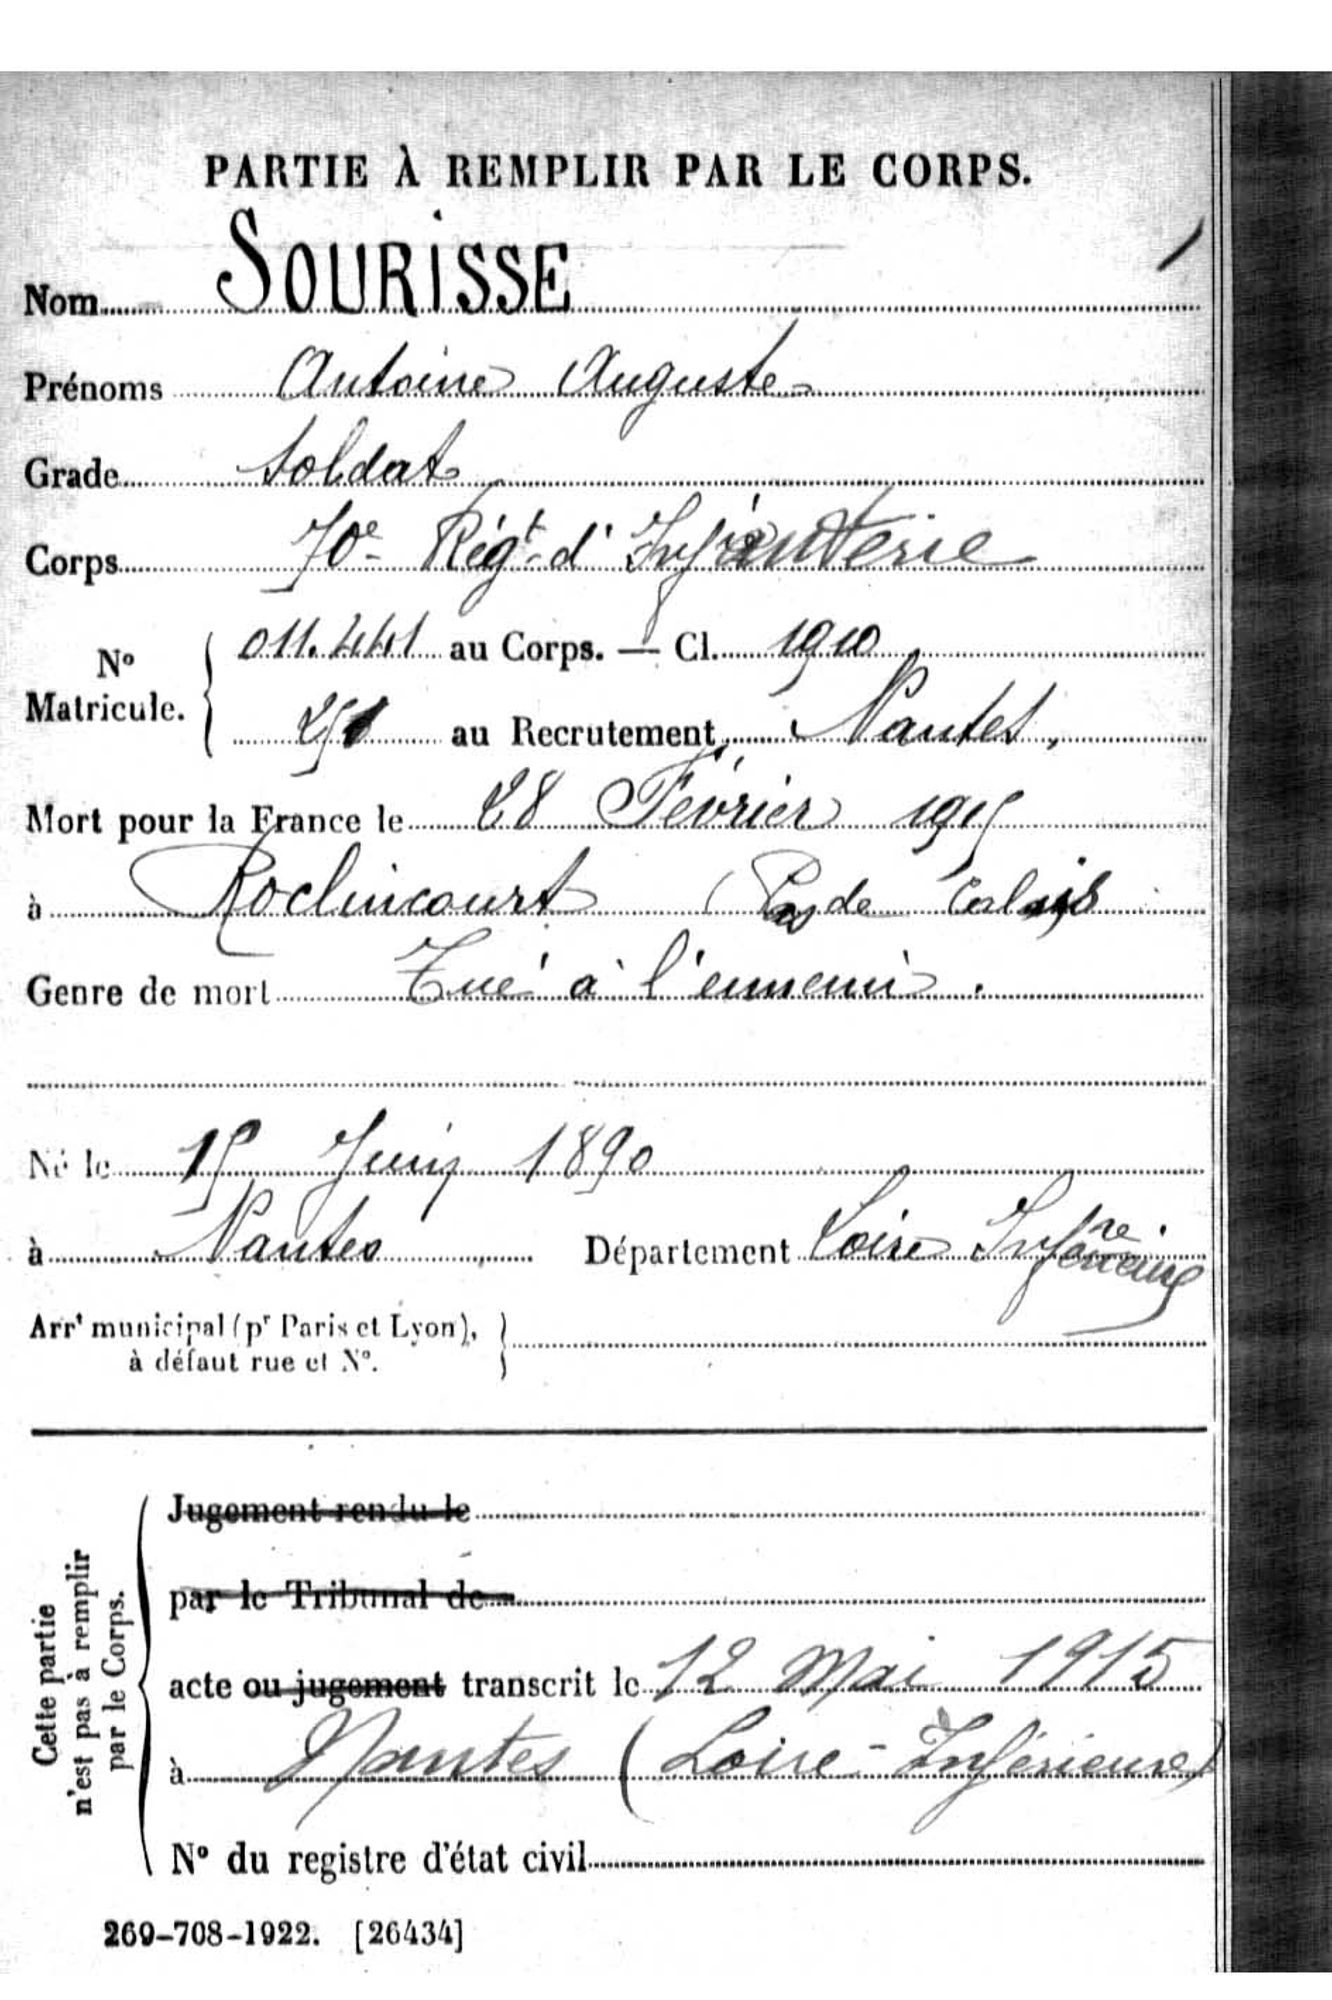 PARTIE À REMPLIR PAR LE CORPS.
Nom SOURISSE
Prénoms Antoine Auguste
Grade Soldat
Corps 70e Régt d'Infanterie
No Matricule. 011.441 au Corps. — Cl. 1910
251 au Recrutement Nantes.
Mort pour la France le 28 Février 1915
à Roclincourt (Pas de Calais
Genre de mort Tué à l'ennemi.
Né le 15 Juin 1890
à Nantes Département Loire Infre
Arrt municipal (pr Paris et Lyon),
à défaut rue et No.
Cette partie
n'est pas à remplir
par le Corps.
Jugement rendu le
par le Tribunal de
acte ou jugement transcrit le 12 Mai 1915
à Nantes (Loire-Inférieure)
No du registre d'état civil
269-708-1922. [26434]